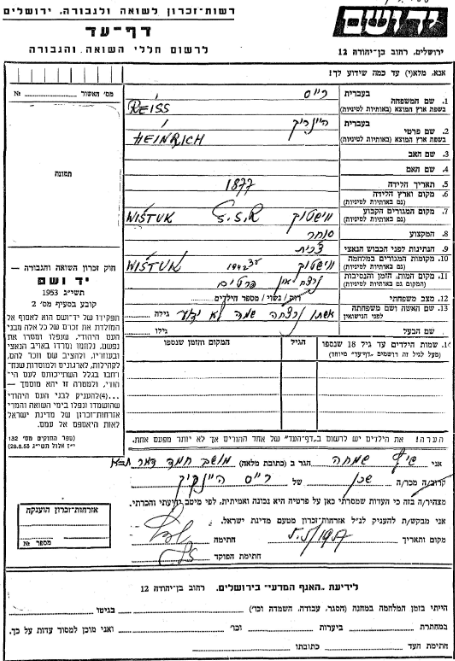 רשות-זכרון לשואה ולגבורה. ירושלים
דף-עד
לרשום חללי השואה והגבורה
יד ושם
ירושלים. רחוב בן-יהודה 12
אנא. מלא(י) עד כמה שידוע לך:
מס' האשור
№
תמונה
1. שם המשפחה
בעברית
רייס
בשפת ארץ המוצא (באותיות לטיניות)
REISS
2. שם פרטי
בעברית
היינריק
בשפת ארץ המוצא (באותיות לטיניות)
HEINRICH
3. שם האב
4. שם האם
5. תאריך הלידה
1877
6. מקום וארץ הלידה
(גם באותיות לטיניות)
7. מקום המגורים הקבוע
(גם באותיות לטיניות)
WISTUK
8. המקצוע
סוחר
9. הנתינות לפני הכבוש הנאצי
10. מקומות המגורים במלחמה
(גם באותיות לטיניות)
WISTUK
11. מקום המות. הזמן והנסיבות
(גם באותיות לטיניות)
12. מצב משפחתי
רוק/נשוי/מספר הילדים
13. שם האשה ושם משפחתה
לפני הנישואין
אשתו נרצחה שמה לא ידוע
גילה
שם הבעל
גילו
חוק זכרון השואה והגבורה —
יד ושם
תשי״ג 1953
קובע בסעיף מס' 2
תפקידו של יד-ושם הוא לאסוף אל
המולדת את זכרם של כל אלה מבני
העם היהודי, שנפלו ומסרו את
נפשם, נלחמו ומרדו באויב הנאצי
ובעוזריו, ולהציב שם וזכר להם,
לקהילות, לארגונים ולמוסדות שנח-
רבו בגלל השתייכותם לעם היה-
ודי, ולמטרה זו יהא מוסמך—
...(4) להעניק לבני העם היהודי
שהושמדו ונפלו בימי השואה והמרי
אזרחות-זכרון של מדינת ישראל
לאות היאספם אל עמם.
(ספר החוקים מס' 132
י״ז אלול תשי״ג 28.8.53)
14. שמות הילדים עד גיל 18 שנספו
(מעל לגיל זה רושמים דף-עד מיוחד)
הגיל
המקום והזמן שנספו
הערה! את הילדים יש לרשום ב„דף-העד" של אחד ההורים אך לא יותר מפעם אחת.
אני שיף שמחה הגר ב (כתובת מלאה) מושב חמד
קרוב/ה מכר/ה שכן של רייס היינריק
מצהיר/ה בזה כי העדות שמסרתי כאן על פרטיה היא נכונה ואמיתית. לפי מיטב ידיעתי והכרתי.
אני מבקש/ת להעניק לנ״ל אזרחות-זכרון מטעם מדינת ישראל.
מקום ותאריך
חתימה
חתימת הפוקד
אזרחות-זכרון הוענקה
מספר №
לידיעת .האגף המדעי" בירושלים. רחוב בן-יהודה 12
הייתי בזמן המלחמה במחנה (הסגר. עבודה. השמדה וכו')
בגיטו
במחתרת
ביערות
וכו'
ואני מוכן למסור עדות על כך.
חתימת העד